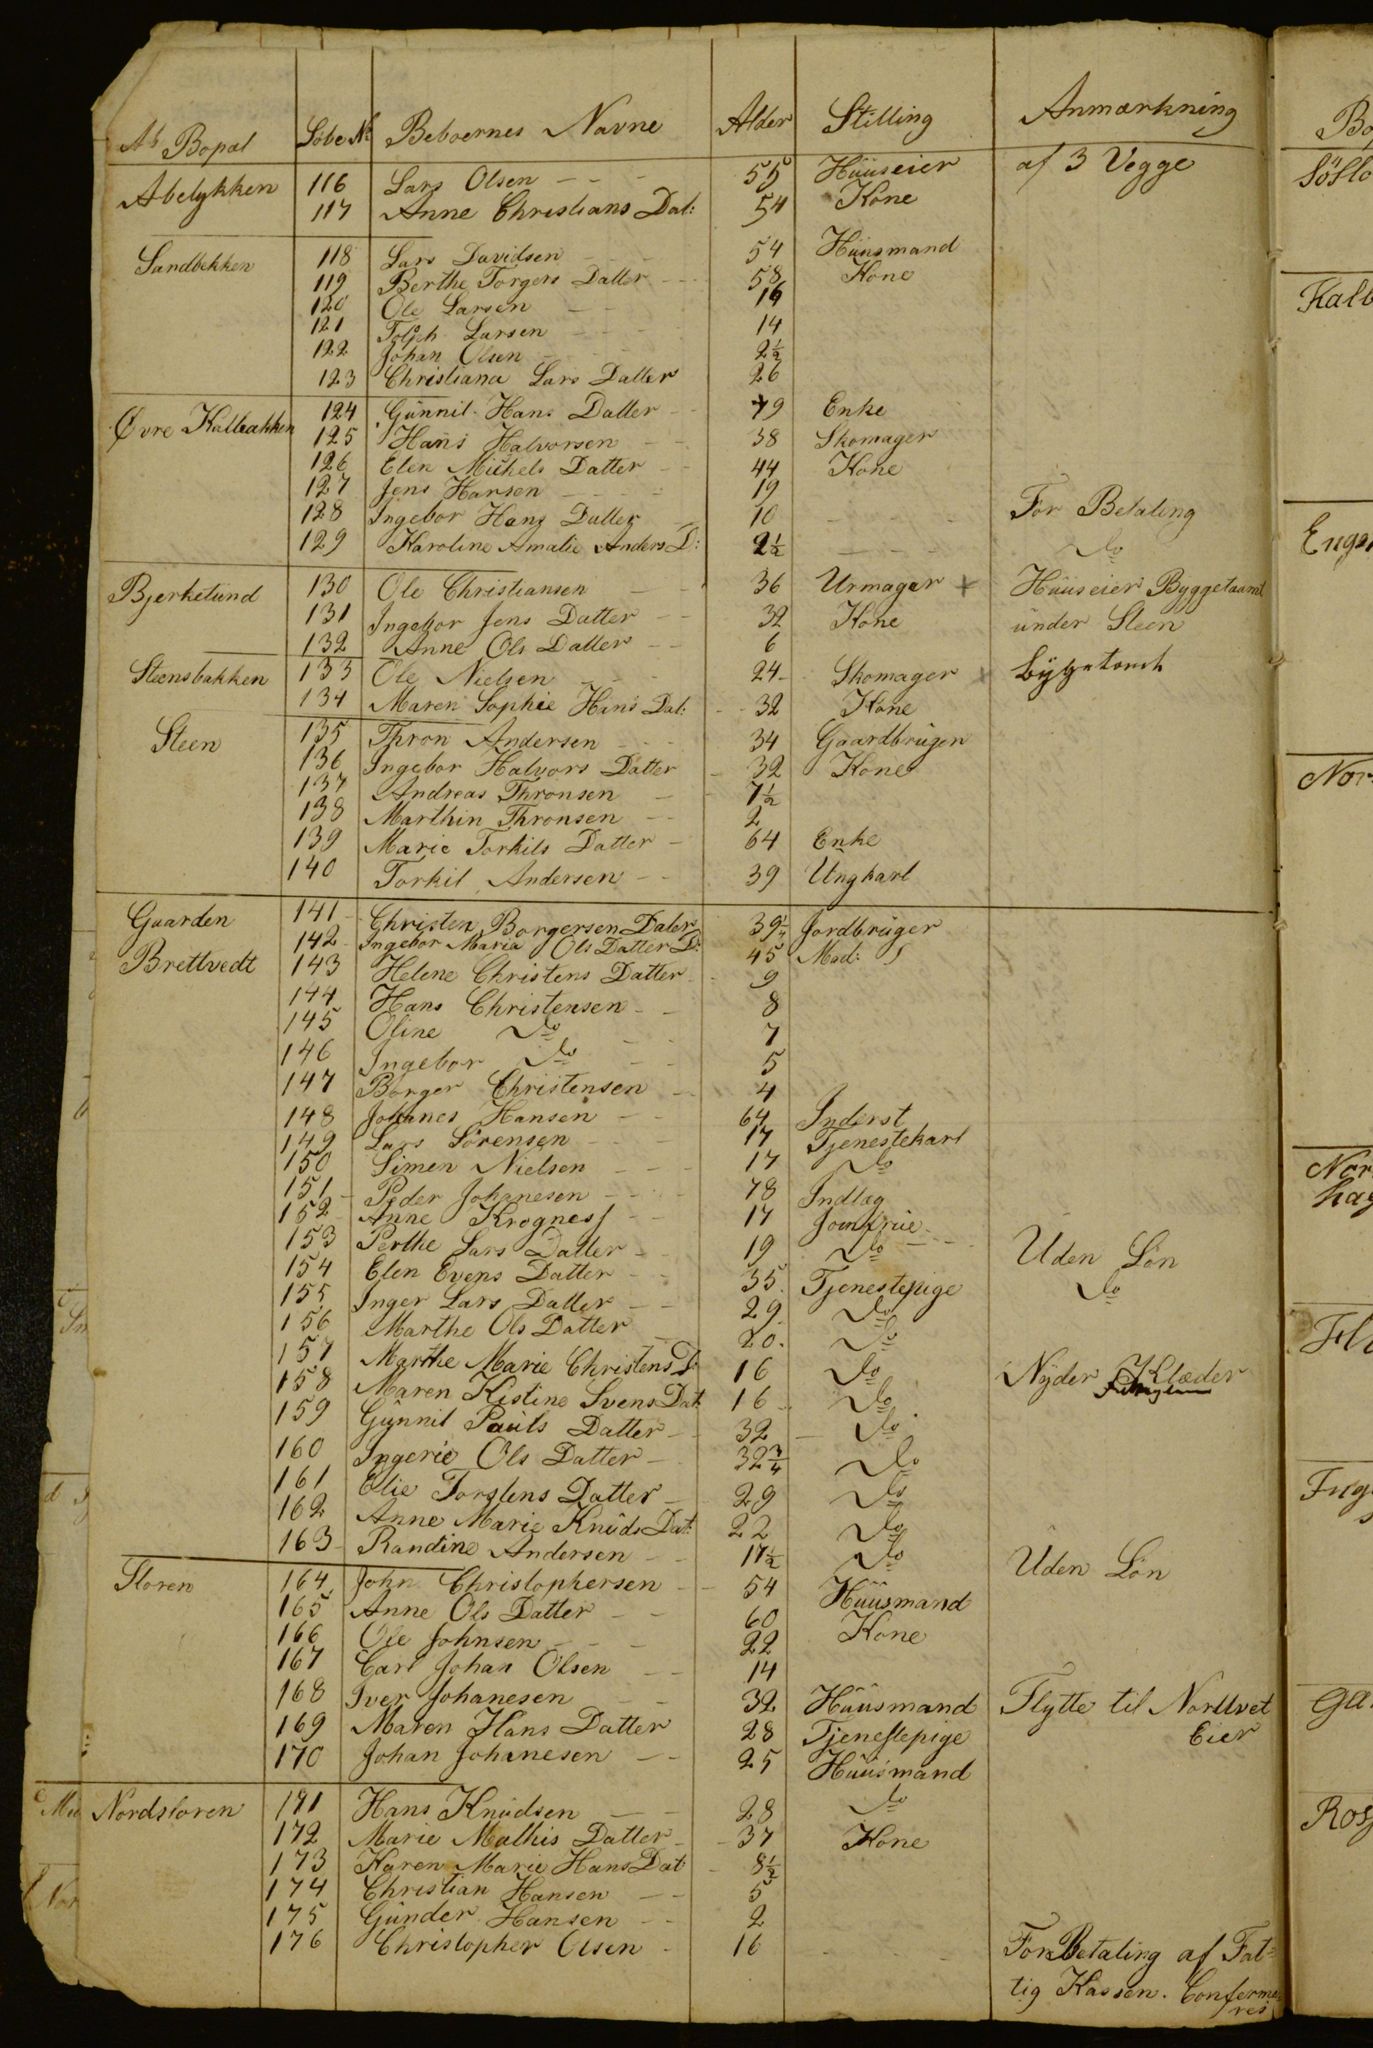 Ab Bopæl Löbe No Beboernes Navne Alder Stilling Anmærkning
Abelykken 116 Lars Olsen 55 Huuseier af 3 Vegge
117 Anne Christians Dat: 54 Kone
Sandbekken 118 Lars Davidsen 54 Huusmand
119 Berthe Torgers Datter 58 Kone
120 Ole Larsen 16
121 Larsen 14
122 Johan Olsen 2½
123 Christiana Lars Datter 26
Øvre Kalbakken 124 Gunnil Hans Datter 79 Enke
125 Hans Halvorsen 38 Skomager
126 Elen Mickels Datter 44 Kone
127 Jens Hansen 19
128 Ingebor Hans Datter 10 For Betaling
129 Karoline Amalie Anders D: 2½ Do
Bjerkelund 130 Ole Christiansen 36 Urmager + Huuseier Byggetaamt
131 Ingebor Jens Datter 32 Kone under Steen
132 Anne Ols Datter 6
Steensbakken 133 Ole Nielsen 24 Skomager +
134 Maren Sophie Hans Dat: 32 Kone
Steen 135 Thron Andersen 34 Gaardbruger
136 Ingebor Halvors Datter 32 Kone
137 Andreas Thronsen 7½
138 Marthin Thronsen 2
139 Marie Torkils Datter 64 Enke
140 Torkil Andersen 39 Ungkarl
Gaarden 141 Christen Borgersen 39 Jordbruger
142 Ingebor Maria Ols Datter D: 45 Mad:
Brettvedt 143 Helene Christens Datter 9
144 Hans Christensen 8
145 Oline Do 7
146 Ingebor Do 5
147 Borger Christensen 4
148 Johanes Hansen 64 Inderst
149 Lars Sörensen 17 Tjenestekarl
150 Simen Nielsen 17 Do
151 Peder Johanesen 78 Indlæg
152 Anne Krogness 17 Jomfrue
153 Perthe Lars Datter 19 Do Uden Lön
154 Elen Evens Datter 35 Tjenestepige Do
155 Inger Lars Datter 29 Do
156 Marthe Ols Datter 20 Do
157 Marthe Marie Christens D: 16 Do Nyder Klæder
158 Maren Kistine Svens Dat 16 Do
159 Gunnil Pauls Datter 32 Do
160 Ingerie Ols Datter 32¾ Do
161 Elie Torstens Datter 29 Do
162 Anne Marie Knuds Dat: 22 Do
163 Randine Andersen 17½ Do Uden Lön
Storen 164 John Christophersen 54 Huusmand
165 Anne Ols Datter 60 Kone
166 Ole Johnsen 22
167 Carl Johan Olsen 14
168 Iver Johanesen 32 Huusmand Flytte til Nortvet
169 Maren Hans Datter 28 Tjenestepige Eier
170 Johan Johanesen 25 Huusmand
Nordstoren 171 Hans Knudsen 28 Do
172 Marie Mathis Datter 37 Kone
173 Karen Marie Hans Dat 8½
174 Christian Hansen 5
175 Gunder Hansen 2
176 Christopher Olsen 16 For Betaling af Fat=
tig Kassen. Conferme=
res